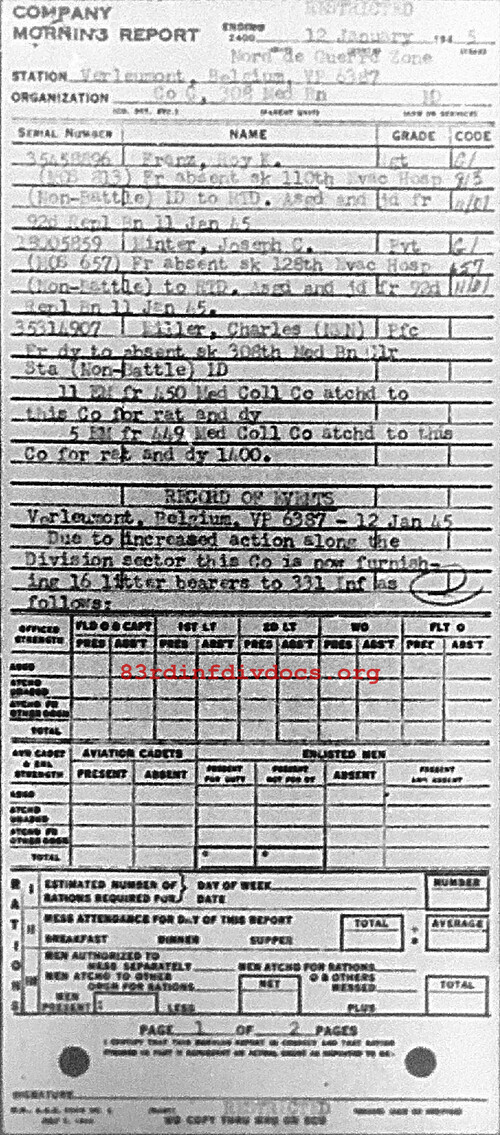 RESTRICTED
COMPANY
MORNING REPORT ENDING 2400 12 January 194 5
Nord de Guerre Zone
STATION Verleumont, Belgium, VP 6387
ORGANIZATION Co C, 308 Med Bn ID
SERIAL NUMBER NAME GRADE CODE
35458896 Franz, Roy E. Sgt
(MOS 813) Fr absent sk 110th Evac Hosp
(Non-Battle) ID to RTD. Asgd and jd fr
92d Repl Bn 11 Jan 45
Minter, Joseph C. Pvt
(MOS 657) Fr absent sk 128th Evac Hosp 657
(Non-Battle) to RTD. Asgd and jd fr 92d
Repl Bn 11 Jan 45.
35314907 Miller, Charles (NMN) Pfc
Fr dy to absent sk 308th Med Bn Clr
Sta (Non-Battle) ID
11 EM fr 450 Med Coll Co atchd to
this Co for rat and dy
5 EM fr 449 Med Coll Co atchd to this
Co for rat and dy 1400.
RECORD OF EVENTS
Verleumont, Belgium, VP 6387 - 12 Jan 45
Due to increased action along the
Division sector this Co is now furnish-
ing 16 litter bearers to 331 Inf as
follows:
OFFICER STRENGTH FLD O & CAPT 1ST LT 2D LT WO FLT O
PRES ABS'T PRES ABS'T PRES ABS'T PRES ABS'T PRES ABS'T
83rdinfdivdocs.org
ASGD
ATCHD UNASGD
ATCHD FR OTHER ORGN
TOTAL
AVN CADET & ENL STRENGTH AVIATION CADETS ENLISTED MEN
PRESENT ABSENT PRESENT FOR DUTY PRESENT NOT FOR DY ABSENT PRESENT AND ABSENT
ASGD
ATCHD UNASGD
ATCHD FR OTHER ORGN
TOTAL
RATIONS
I ESTIMATED NUMBER OF RATIONS REQUIRED FOR DAY OF WEEK DATE NUMBER
II MESS ATTENDANCE FOR DAY OF THIS REPORT TOTAL AVERAGE
BREAKFAST DINNER SUPPER
III MEN AUTHORIZED TO MESS SEPARATELY MEN ATCHD FOR RATIONS
MEN ATCHD TO OTHER ORGN FOR RATIONS NET O & OTHERS MESSED TOTAL
MEN PRESENT LESS PLUS
PAGE 1 OF 2 PAGES
SIGNATURE
RESTRICTED